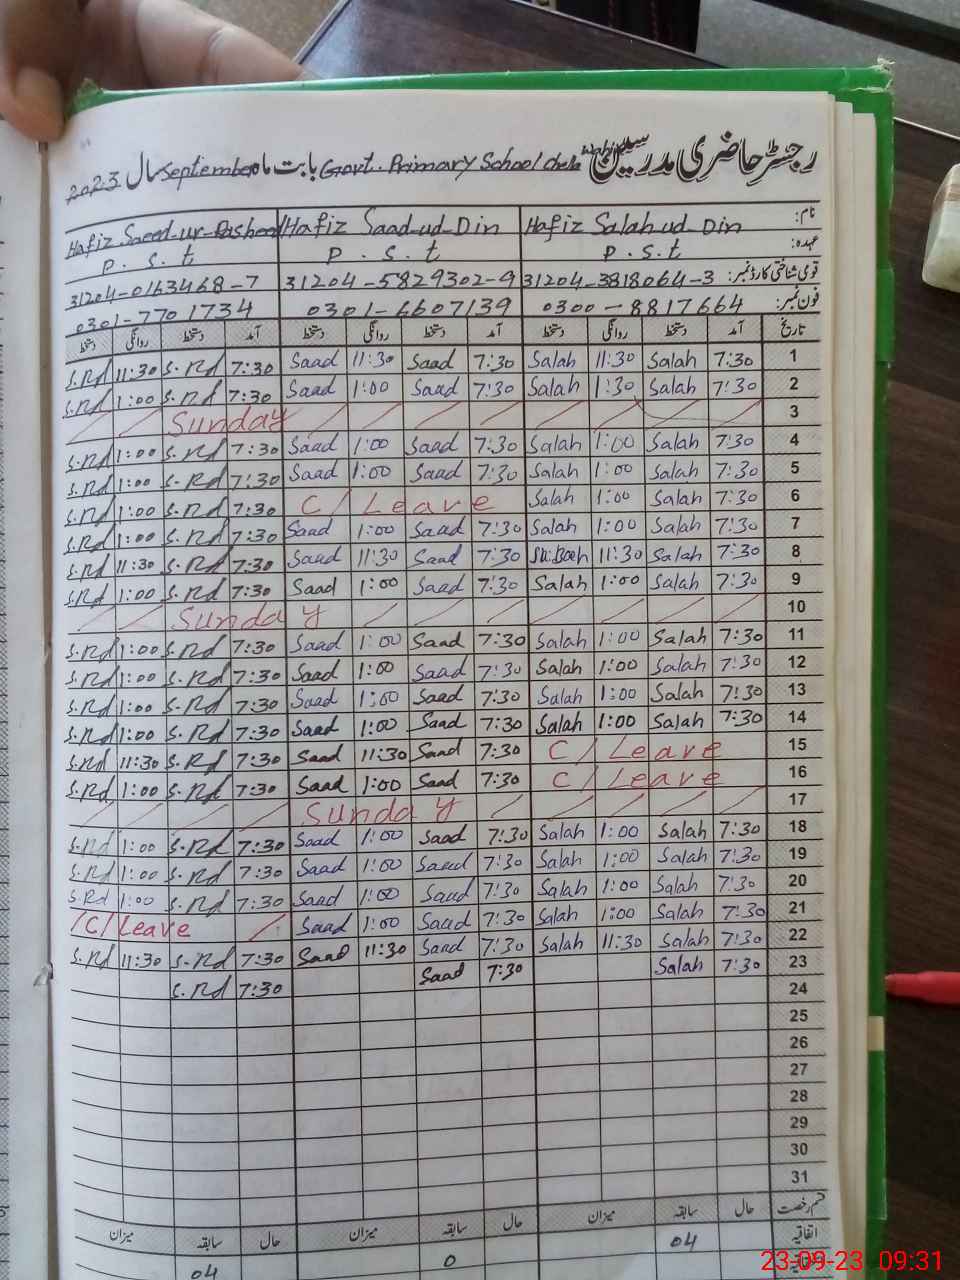 رجسٹر حاضری مدرسین Govt. Primary School بابت ماہ September سال 2023
نام: Hafiz Salah ud Din Hafiz Saad-ud-Din Hafiz Saeed-ur-Rasheed
عہدہ: P.S.t P.S.t P.S.t
قومی شناختی کارڈ نمبر: 31204-3818064-3 31204-5829302-9 31204-0163468-7
فون نمبر: 0300-8817664 0301-6607139 0301-7701734
تاریخ آمد دستخط روانگی دستخط آمد دستخط روانگی دستخط آمد دستخط روانگی دستخط
1 7:30 Salah 11:30 Salah 7:30 Saad 11:30 Saad 7:30 S.Rd 11:30 S.Rd
2 7:30 Salah 1:30 Salah 7:30 Saad 1:00 Saad 7:30 S.Rd 1:00 S.Rd
3 Sunday
4 7:30 Salah 1:00 Salah 7:30 Saad 1:00 Saad 7:30 S.Rd 1:00 S.Rd
5 7:30 Salah 1:00 Salah 7:30 Saad 1:00 Saad 7:30 S.Rd 1:00 S.Rd
6 7:30 Salah 1:00 Salah C/Leave 7:30 S.Rd 1:00 S.Rd
7 7:30 Salah 1:00 Salah 7:30 Saad 1:00 Saad 7:30 S.Rd 1:00 S.Rd
8 7:30 Salah 11:30 7:30 Saad 11:30 Saad 7:30 S.Rd 11:30 S.Rd
9 7:30 Salah 1:00 Salah 7:30 Saad 1:00 Saad 7:30 S.Rd 1:00 S.Rd
10 Sunday
11 7:30 Salah 1:00 Salah 7:30 Saad 1:00 Saad 7:30 S.Rd 1:00 S.Rd
12 7:30 Salah 1:00 Salah 7:30 Saad 1:00 Saad 7:30 S.Rd 1:00 S.Rd
13 7:30 Salah 1:00 Salah 7:30 Saad 1:00 Saad 7:30 S.Rd 1:00 S.Rd
14 7:30 Salah 1:00 Salah 7:30 Saad 1:00 Saad 7:30 S.Rd 1:00 S.Rd
15 C/Leave 7:30 Saad 11:30 Saad 7:30 S.Rd 11:30 S.Rd
16 C/Leave 7:30 Saad 1:00 Saad 7:30 S.Rd 1:00 S.Rd
17 Sunday
18 7:30 Salah 1:00 Salah 7:30 Saad 1:00 Saad 7:30 S.Rd 1:00 S.Rd
19 7:30 Salah 1:00 Salah 7:30 Saad 1:00 Saad 7:30 S.Rd 1:00 S.Rd
20 7:30 Salah 1:00 Salah 7:30 Saad 1:00 Saad 7:30 S.Rd 1:00 S.Rd
21 7:30 Salah 1:00 Salah 7:30 Saad 1:00 Saad C/Leave
22 7:30 Salah 11:30 Salah 7:30 Saad 11:30 Saad 7:30 S.Rd 11:30 S.Rd
23 7:30 Salah 7:30 Saad 7:30 S.Rd
24
25
26
27
28
29
30
31
قسم رخصت حال سابقہ میزان حال سابقہ میزان حال سابقہ میزان
اتفاقیہ 04 0 04
23-09-23 09:31